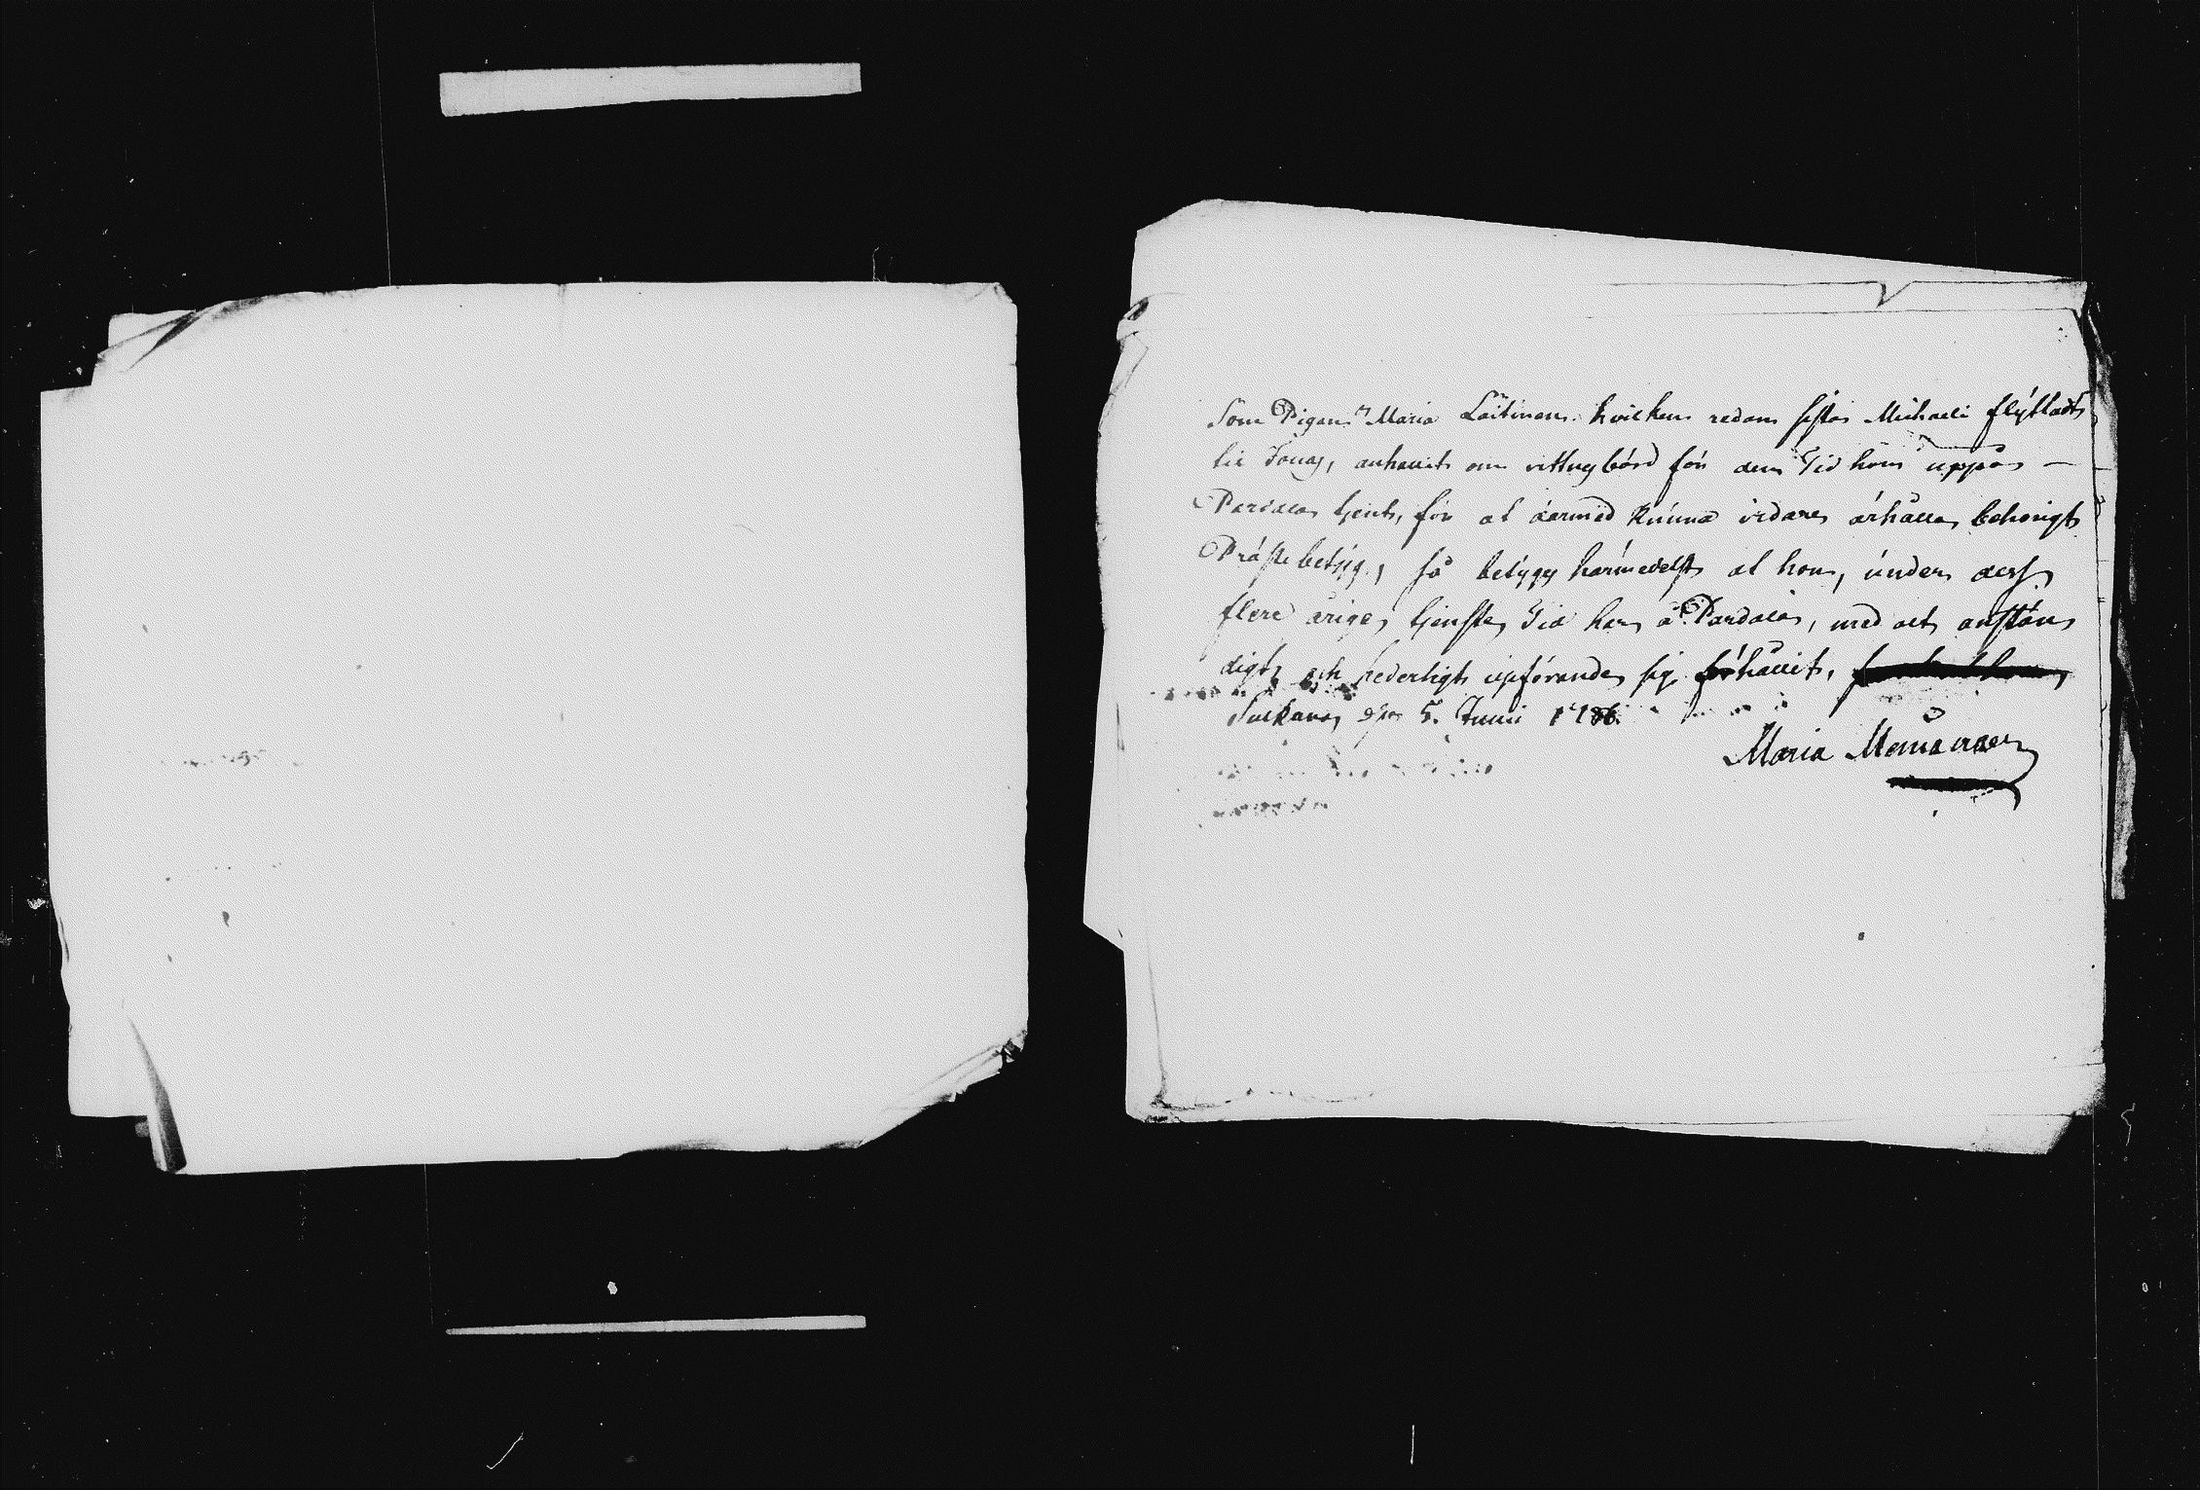 Som Pigan Maria Laitinen hvilken redan sistas Michaeli flÿttadt
til Jouas, anhållit om vittnesbörd för den Tid hon uppå
Pardala tjent, för at därmed kunna vidare ärhålla behörigt
Präste betÿg, så betÿges härmedelst at hon, under dess
flere årige tjenste Tid här å Pardala, med alt anstän
digt och hederligt upförande sig förhållit,
Sulkava d. 5. Junii 1786.
Maria